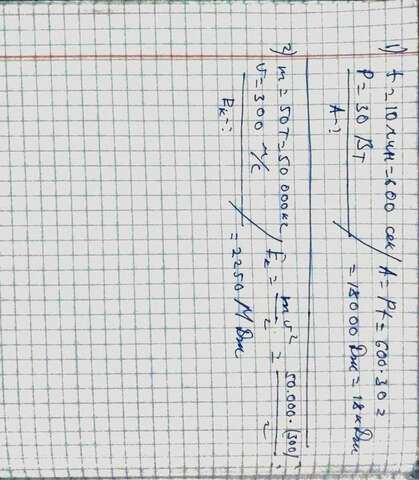 1) t = 10 мин = 600 сек / A = Pt = 600·30 =
P = 30 Вт = 18000 Дж = 18 кДж
A - ?
2) m = 50 т = 50 000 кг / Eк = mv²/2 = 50.000·(300)²/2 =
v = 300 м/с = 2250 МДж
Eк - ?